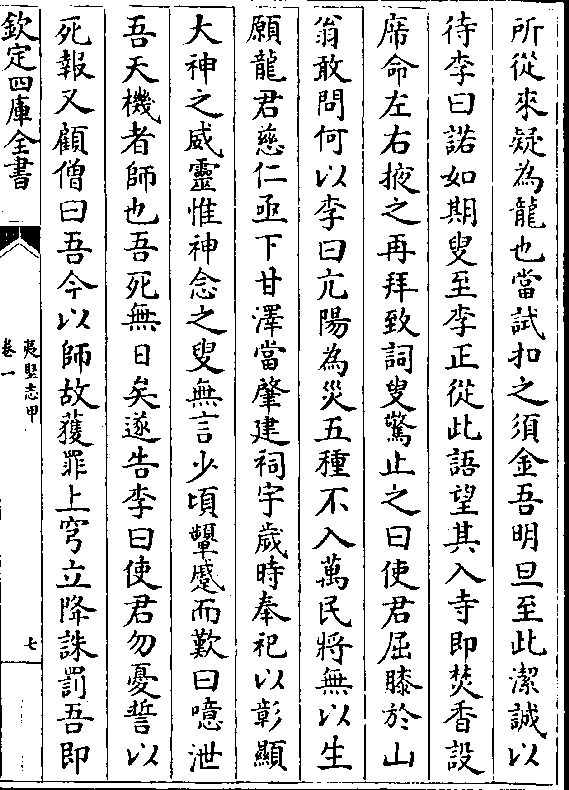 所從來疑為龍也當試扣之須金吾明旦至此潔誠以
待李曰諾如期叟至李正從此語望其入寺即焚香設
席命左右掖之再拜致詞叟驚止之曰使君屈膝於山
翁敢問何以李曰亢陽為災五種不入萬民將無以生
願龍君慈仁亟下甘澤當肇建祠宇歲時奉祀以彰顯
大神之威靈惟神念之叟無言少頃顰蹙而歎曰噫泄
吾天機者師也吾死無日矣遂告李曰使君勿憂誓以
死報又顧僧曰吾今以師故獲罪上穹立降誅罰吾即
欽定四庫全書
夷堅志甲
卷一
七